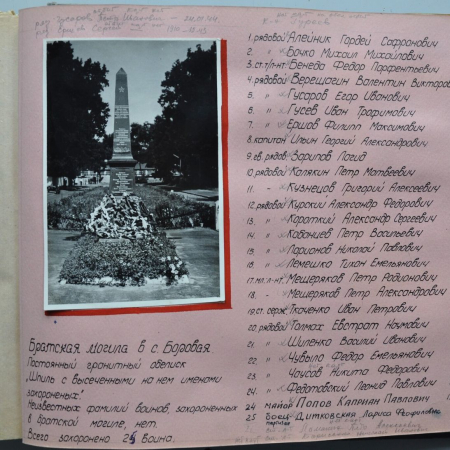 1. рядовой Алейник Гордей Софронович
2. " Бочко Михаил Михайлович
3. ст. л-нт Бенеда Федор Парфентьевич
4. рядовой Верещагин Валентин Викторов
5. " Гусаров Егор Иванович
6. " Гусев Иван Трофимович
7. " Ершов Филипп Максимович
8. капитан Ильин Георгий Александрович
9. гв. рядов. Зарипов
0. рядовой Калякин Петр Матвеевич
11. - Кузнецов Григорий Алексеевич
12. рядовой Курский Александр Федорович
13. " Короткий Александр Сергеевич
14. " Кованцев Петр Васильевич
15. " Ларионов Николай Павлович
16. " Лемешко Тихон Емельянович
17. мл. л-нт Мещеряков Петр Родионович
18. - Мещеряков Петр Александрович
19. ст. серж. Ткаченко Иван Петрович
20. рядовой Толмах Евстрат Наумович
21. " Шиленко Василий Иванович
22. " Чувыло Федор Емельянович
23. " Чаусов Никита Федорович
24. " Федотовский Леонид Павлович
24 майор Попов Каприан Павлович
25 боец-партизан Дитковская Лариса Феофиловна
Братская могила в с. Боровая
Постоянный гранитный обелиск
"Шпиль с высеченными на нем именами
захороненых".
Неизвестных фамилий воинов, захороненных
в братской могиле, нет.
Всего захоронено 25 воина.